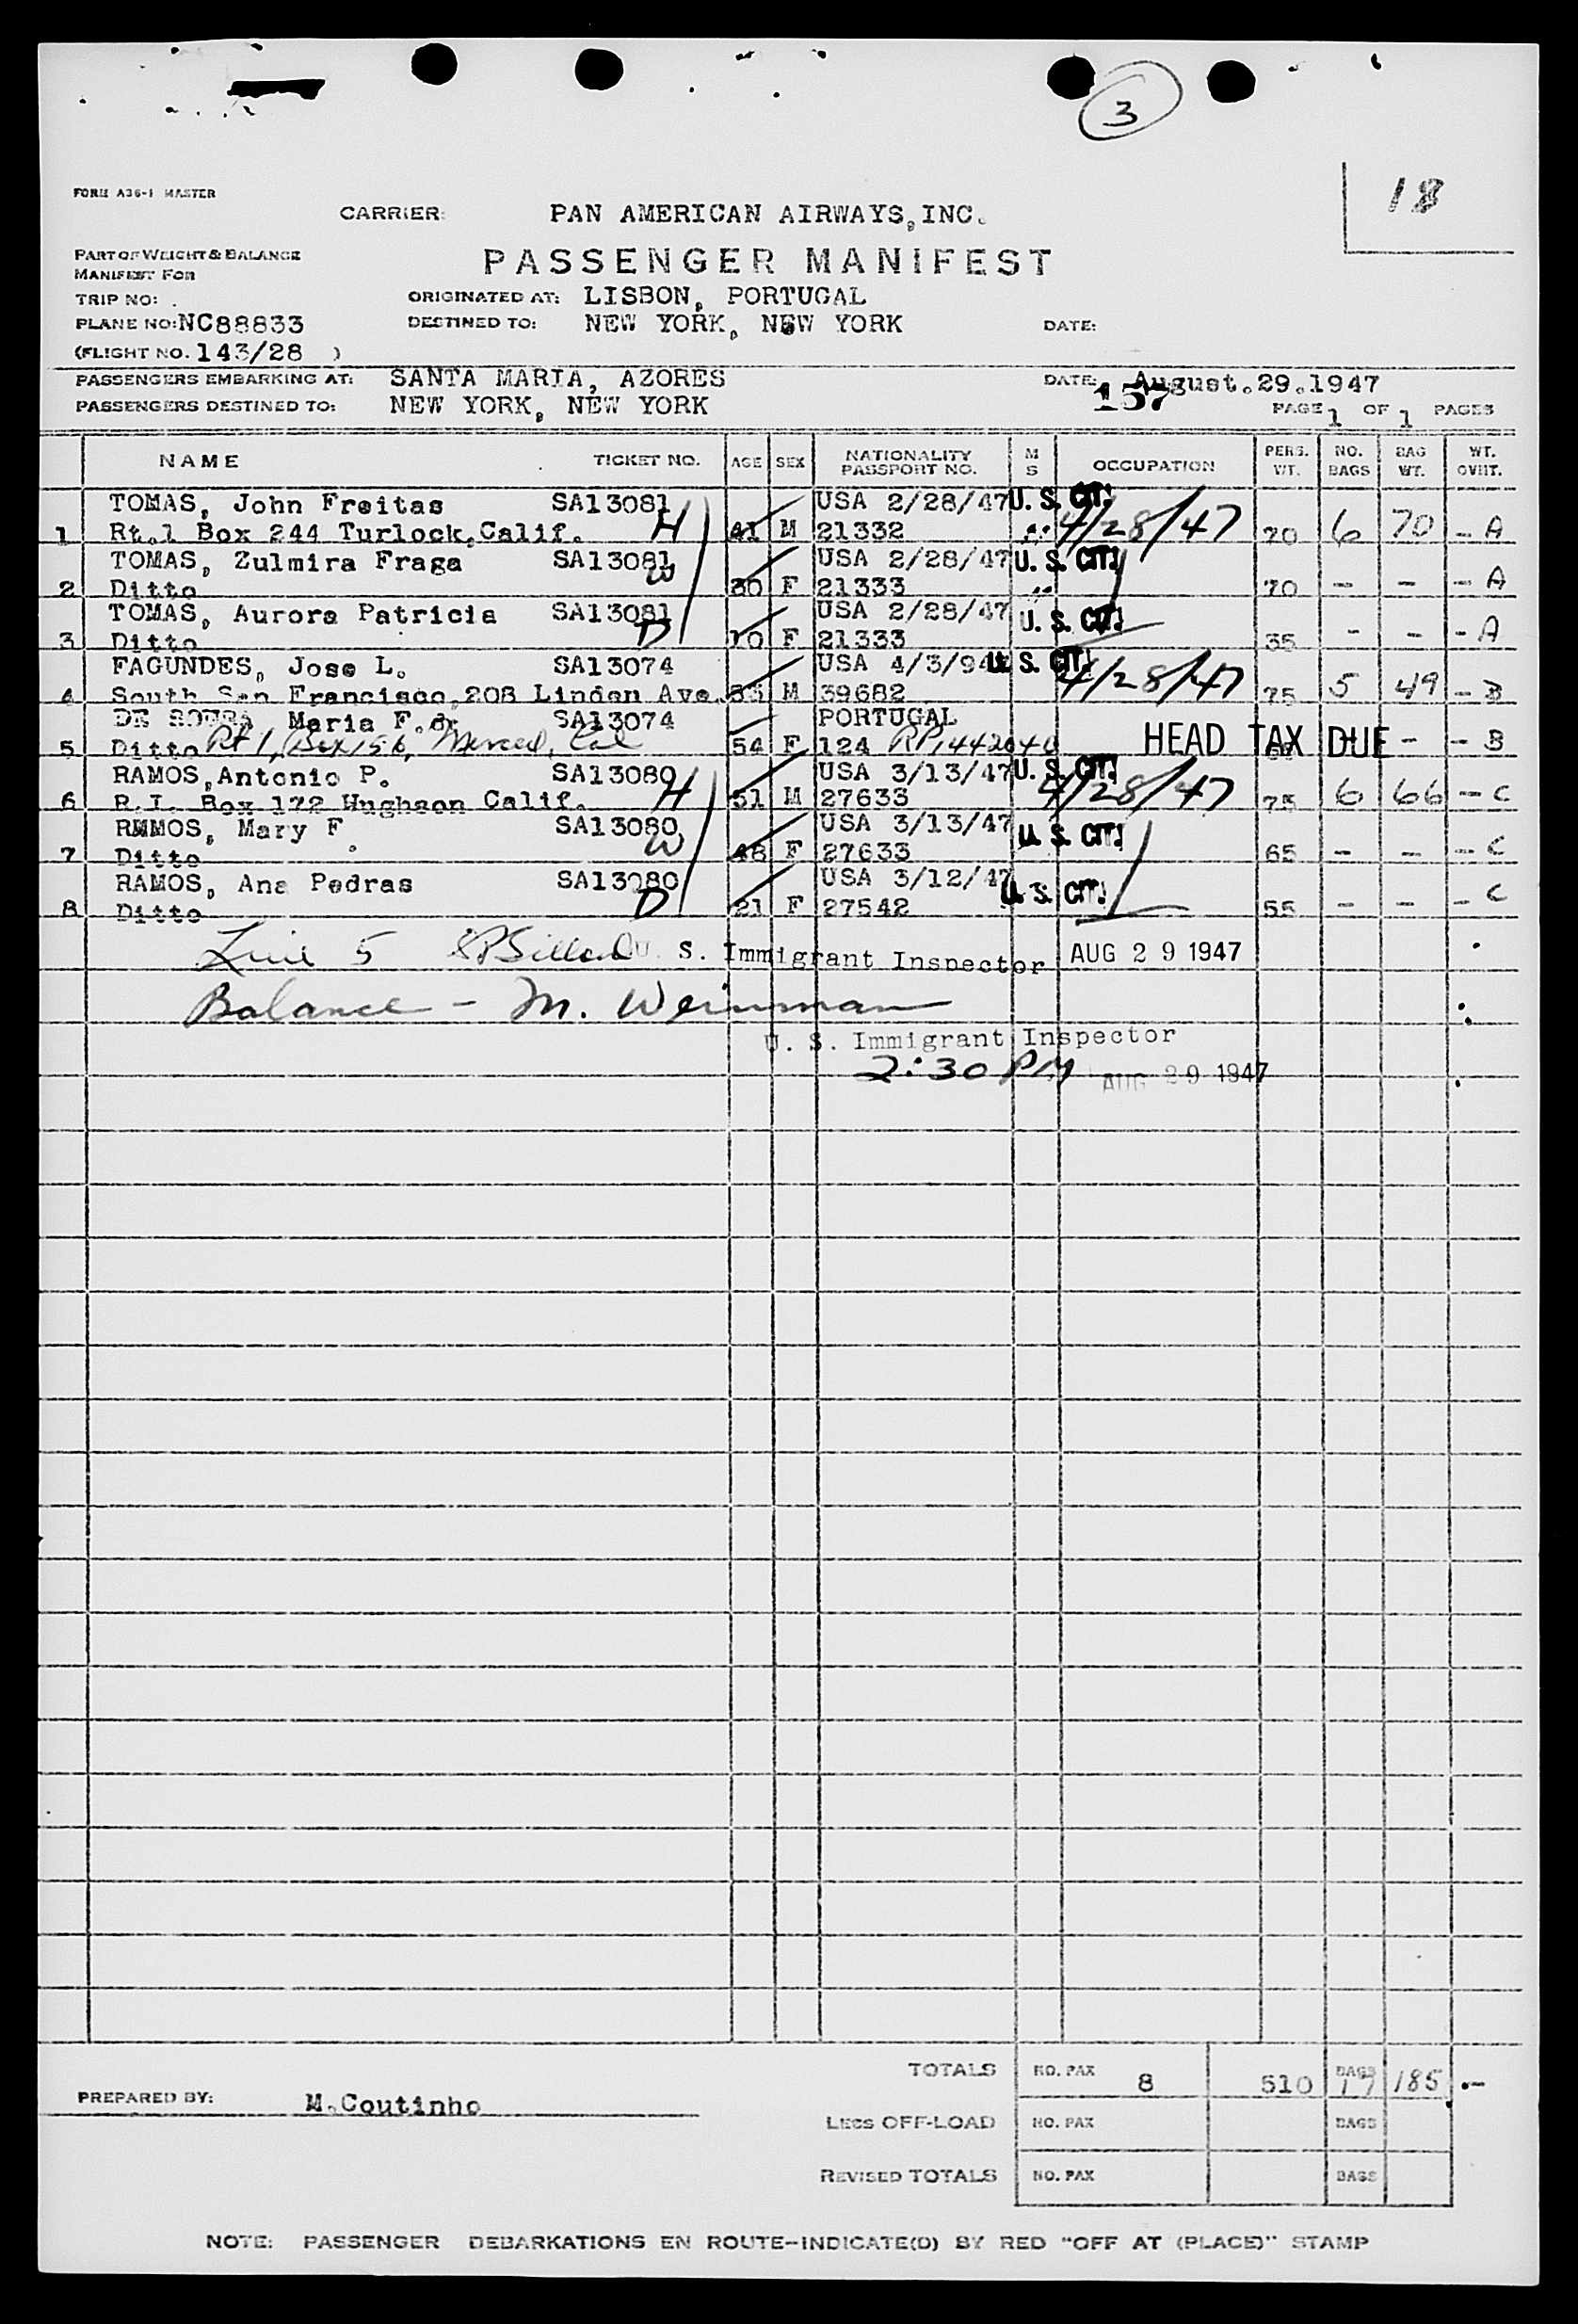 3
18
FORM A36-1 MASTER
CARRIER: PAN AMERICAN AIRWAYS, INC.
PART OF WEIGHT & BALANCE
MANIFEST FOR
PASSENGER MANIFEST
TRIP NO:
ORIGINATED AT: LISBON, PORTUGAL
PLANE NO: NC88833
DESTINED TO: NEW YORK, NEW YORK
DATE:
(FLIGHT NO. 143/28 )
PASSENGERS EMBARKING AT: SANTA MARIA, AZORES
DATE: August.29.1947
157
PASSENGERS DESTINED TO: NEW YORK, NEW YORK
PAGE 1 OF 1 PAGES
NAME TICKET NO. AGE SEX NATIONALITY PASSPORT NO. M S OCCUPATION PERS. WT. NO. BAGS BAG WT. WT. OVHT.
TOMAS, John Freitas SA13081 USA 2/28/47 U. S. CIT.
1 Rt.1 Box 244 Turlock,Calif. H 41 M 21332 4/28/47 70 6 70 - A
TOMAS, Zulmira Fraga SA13081 USA 2/28/47 U. S. CIT.
2 Ditto W 30 F 21333 70 - - - A
TOMAS, Aurora Patricia SA13081 USA 2/28/47 U. S. CIT.
3 Ditto D 10 F 21333 35 - - - A
FAGUNDES, Jose L. SA13074 USA 4/3/94 U. S. CIT.
4 South San Francisco,208 Linden Ave. M 39682 4/28/47 75 5 49 - B
DE SOUSA Maria F. SA13074 PORTUGAL
5 Ditto Rt 1, Box 156, Merced, Cal 54 F 124 HEAD TAX DUE - - B
RAMOS,Antonio P. SA13080 USA 3/13/47 U. S. CIT.
6 R.I. Box 172 Hughson Calif. H 51 M 27633 4/28/47 75 6 66 - C
RMMOS, Mary F. SA13080 USA 3/13/47 U. S. CIT.
7 Ditto W 48 F 27633 65 - - - C
RAMOS, Ana Pedras SA13080 USA 3/12/47 U. S. CIT.
8 Ditto D 21 F 27542 55 - - - C
Line 5 U. S. Immigrant Inspector AUG 29 1947
Balance - M. Weinman
U. S. Immigrant Inspector
2:30 PM AUG 29 1947
TOTALS NO. PAX 8 510 BAGS 17 185 .-
PREPARED BY: M.Coutinho
LESS OFF-LOAD NO. PAX BAGS
REVISED TOTALS NO. PAX BAGS
NOTE: PASSENGER DEBARKATIONS EN ROUTE-INDICATE(D) BY RED "OFF AT (PLACE)" STAMP